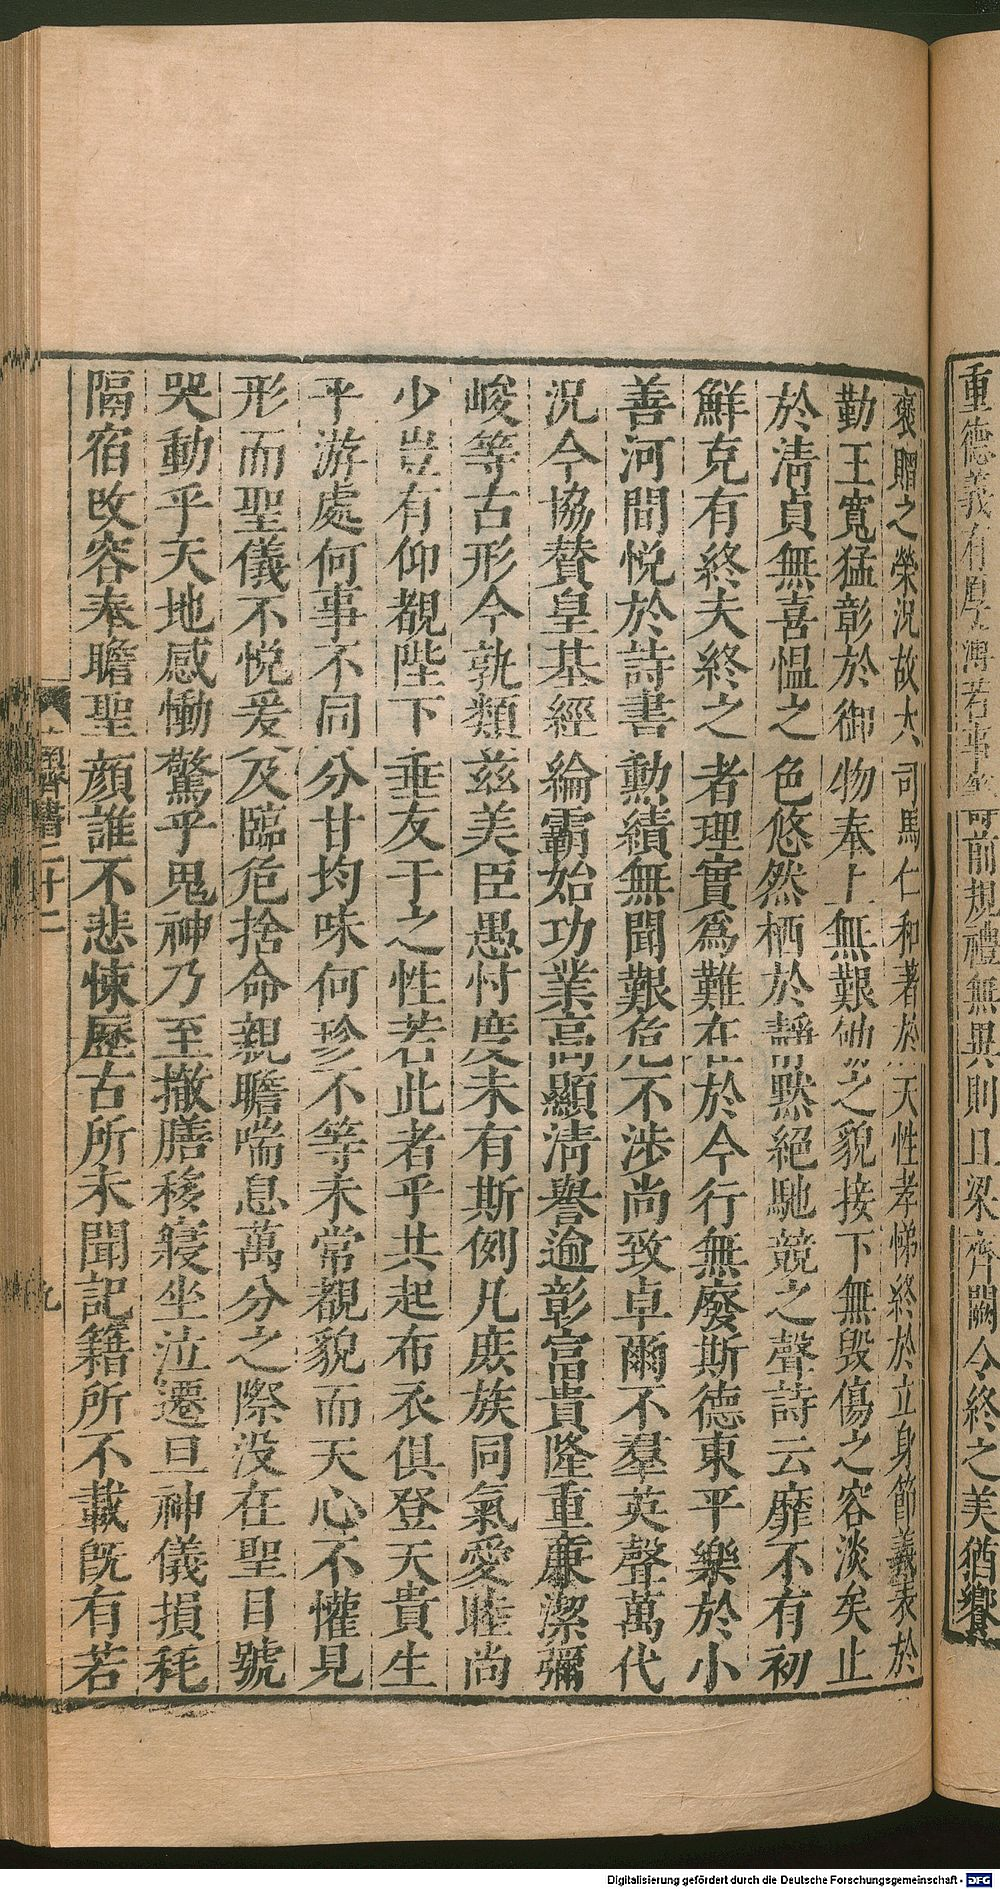 重德義有厚薄若事篤前規禮無異則且梁齊闕令終之美猶饗
褒贈之榮況故大司馬仁和著於天性孝悌終於立身節義表於
勤王寬猛彰於御物奉上無艱劬之貌接下無毀傷之容淡矣止
於清貞無喜愠之色悠然栖於靜默絕馳競之聲詩云靡不有初
鮮克有終夫終之者理實爲難在於今行無廢斯德東平樂於小
善河間悅於詩書勳績無聞艱危不涉尚致卓爾不羣英聲萬代
況今協贊皇基經綸霸始功業高顯清譽逾彰富貴隆重廉潔彌
峻等古形今孰類茲美臣愚忖度未有斯例凡庶族同氣愛睦尚
少豈有仰覩陛下垂友于之性若此者乎共起布衣俱登天貴生
平游處何事不同分甘均味何珍不等未常覩貌而天心不懽見
形而聖儀不悅爰及臨危捨命親瞻喘息萬分之際沒在聖目號
哭動乎天地感慟驚乎鬼神乃至撤膳移寢坐泣遷旦神儀損耗
隔宿改容奉瞻聖顏誰不悲悚歷古所未聞記籍所不載既有若
南齊書二十二
九
Digitalisierung gefördert durch die Deutsche Forschungsgemeinschaft - DFG